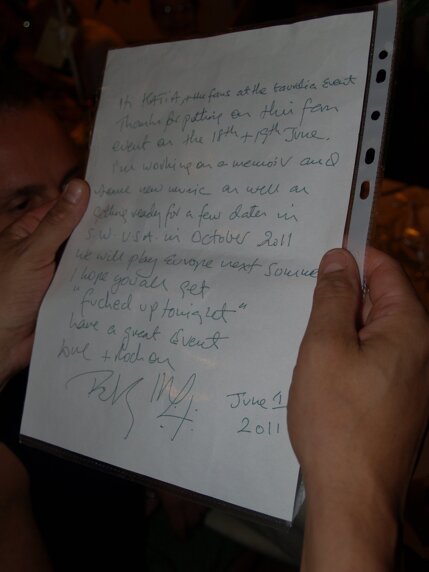 Hi KATiA, + the fans at the Event
Thanks for putting on this fan
event on the 18th + 19th June.
I'm working on a memoir and
some new music as well as
getting ready for a few dates in
S.W. USA. in October 2011
We will play Europe next Summer
I hope you all get
"fucked up tonight"
have a great Event
Love + Rock on
June 1
2011